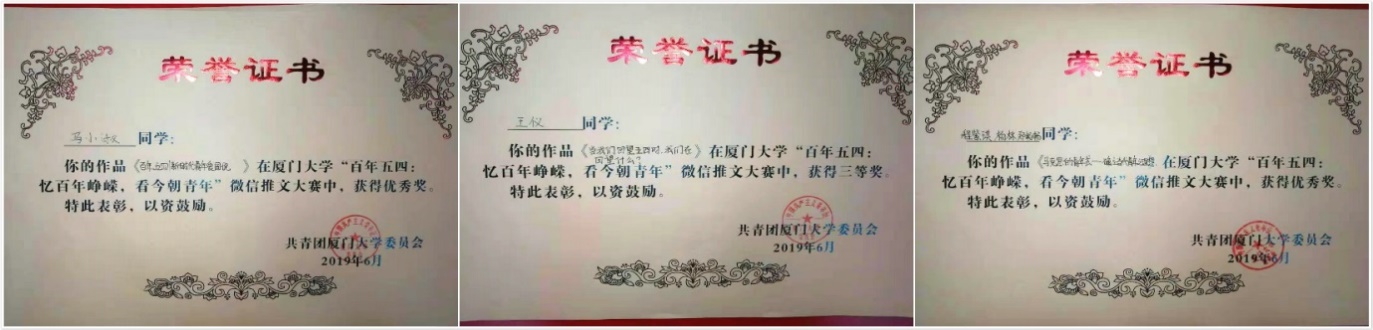 荣誉证书
马小淑 同学:
你的作品《百年五四 》在厦门大学“百年五四:
忆百年峥嵘,看今朝青年”微信推文大赛中,获得优秀奖。
特此表彰,以资鼓励。
共青团厦门大学委员会
2019年6月
荣誉证书
王仪 同学:
你的作品《当我们回望五四时,我们在
回望什么? 》在厦门大学“百年五四:
忆百年峥嵘,看今朝青年”微信推文大赛中,获得三等奖。
特此表彰,以资鼓励。
共青团厦门大学委员会
2019年6月
荣誉证书
同学:
你的作品《 在厦门大学“百年五四:
忆百年峥嵘,看今朝青年”微信推文大赛中,获得优秀奖。
特此表彰,以资鼓励。
共青团厦门大学委员会
2019年6月